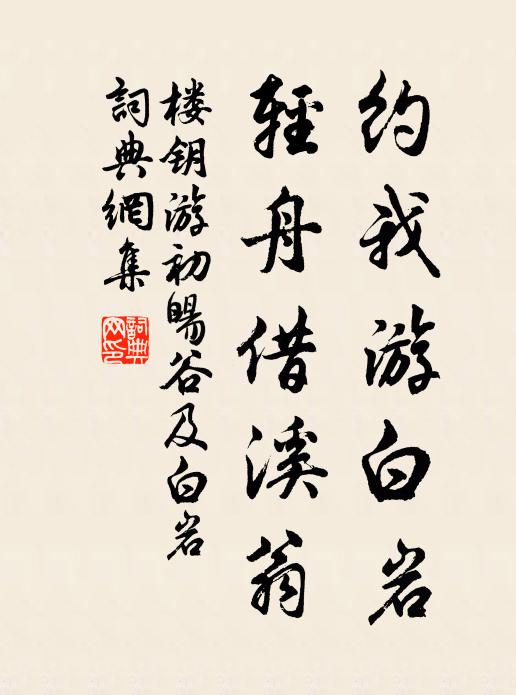 约我游白岩
輕舟借溪翁
楼钥游初暘谷及白岩
詞典網集
詞典
网印